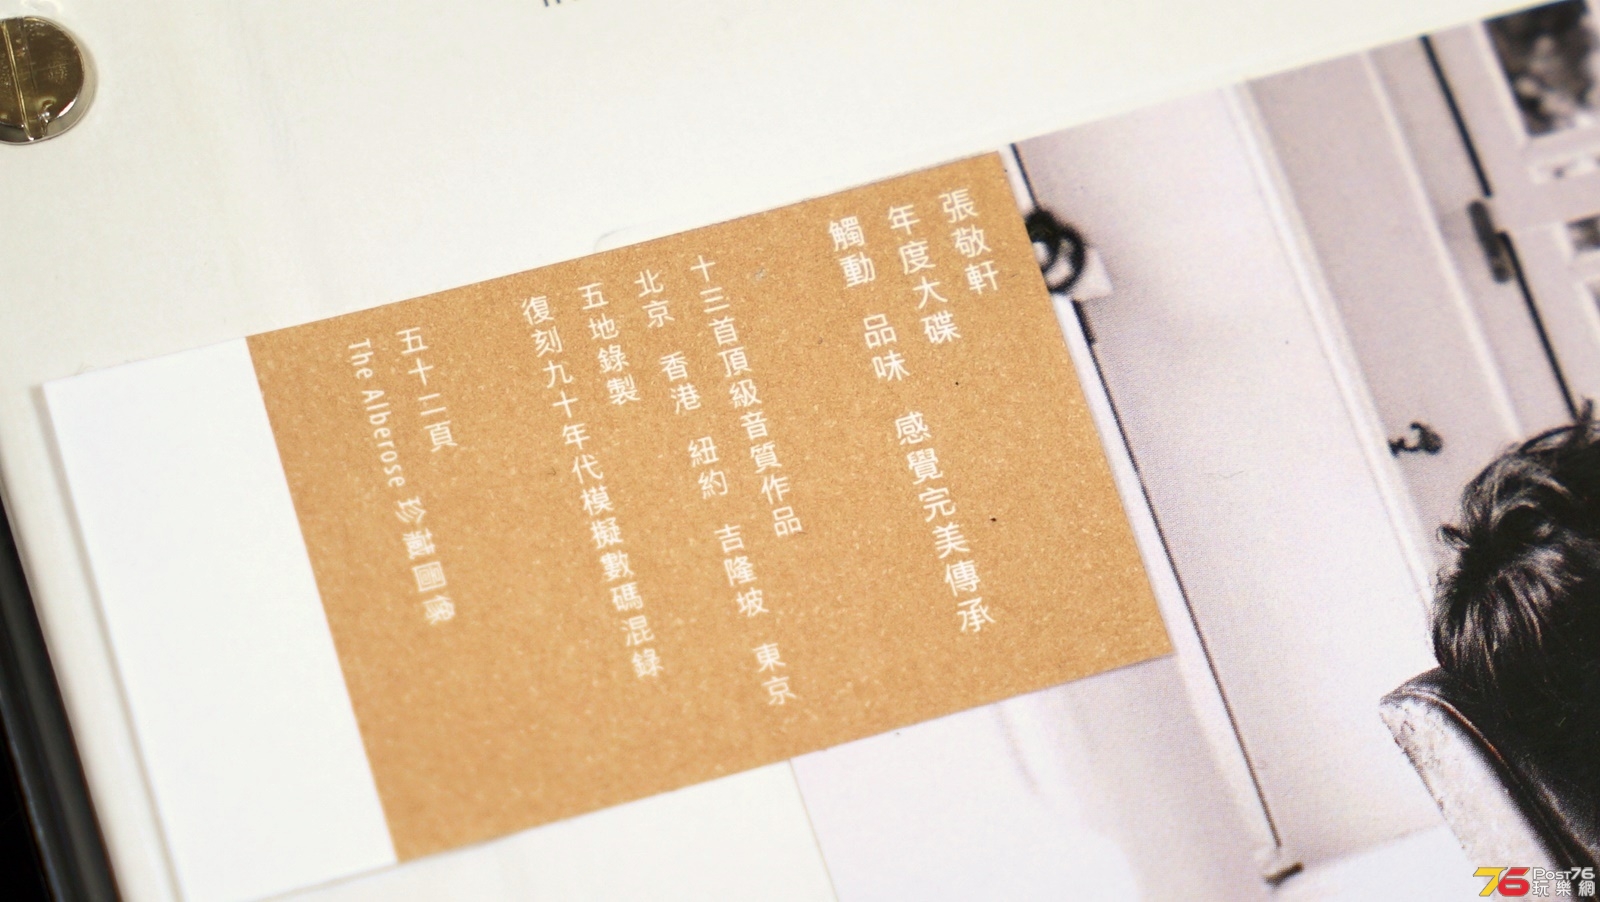 張敬軒
年度大碟
觸動 品味 感覺完美傳承
十三首頂級音質作品
北京 香港 紐約 吉隆坡 東京
五地錄製
復刻九十年代模擬數碼混錄
五十二頁
The Alberose 珍藏圖像
76 Post76
玩樂網